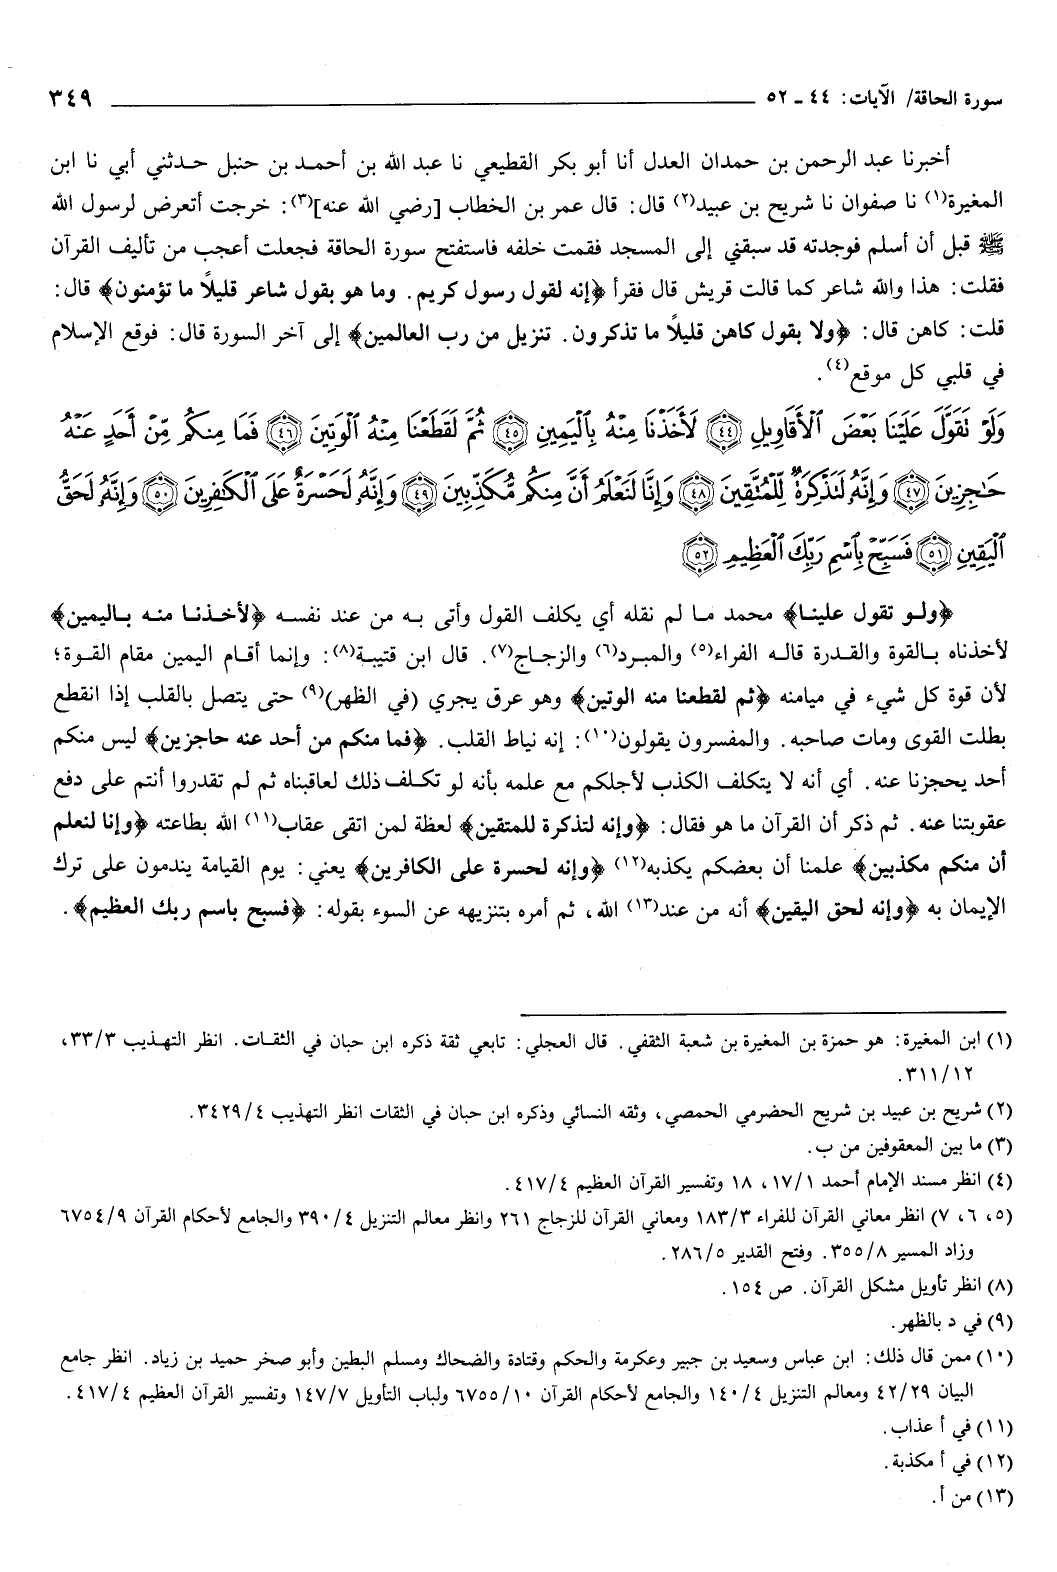 سورة الحاقة/ الآيات: ٤٤ ـ ٥٢ ٣٤٩
أخبرنا عبد الرحمن بن حمدان العدل أنا أبو بكر القطيعي نا عبد الله بن أحمـد بن حنبل حـدثني أبي نا ابن
المغيرة(١) نا صفوان نا شريح بن عبيد(٢) قال: قال عمر بن الخطاب [رضي الله عنه](٣): خرجت أتعرض لرسول الله
ﷺ قبل أن أسلم فوجدته قد سبقني إلى المسجد فقمت خلفه فاستفتح سورة الحاقة فجعلت أعجب من تأليف القرآن
فقلت: هذا والله شاعر كما قالت قريش قال فقرأ ﴿إنه لقول رسول كريم. وما هو بقول شاعر قليلاً ما تؤمنون﴾ قال:
قلت: كاهن قال: ﴿ولا بقول كاهن قليلاً ما تذكرون. تنزيل من رب العالمين﴾ إلى آخر السورة قال: فوقع الإسلام
في قلبي كل موقع(٤).
وَلَوْ تَقَوَّلَ عَلَيْنَا بَعْضَ ٱلْأَقَاوِيلِ ٤٤ لَأَخَذْنَا مِنْهُ بِٱلْيَمِينِ ٤٥ ثُمَّ لَقَطَعْنَا مِنْهُ ٱلْوَتِينَ ٤٦ فَمَا مِنكُم مِّنْ أَحَدٍ عَنْهُ
حَـٰجِزِينَ ٤٧ وَإِنَّهُۥ لَتَذْكِرَةٌ لِّلْمُتَّقِينَ ٤٨ وَإِنَّا لَنَعْلَمُ أَنَّ مِنكُم مُّكَذِّبِينَ ٤٩ وَإِنَّهُۥ لَحَسْرَةٌ عَلَى ٱلْكَـٰفِرِينَ ٥٠ وَإِنَّهُۥ لَحَقُّ
ٱلْيَقِينِ ٥١ فَسَبِّحْ بِٱسْمِ رَبِّكَ ٱلْعَظِيمِ ٥٢
﴿ولـو تقول علينـا﴾ محمد مـا لم نقله أي يكلف القول وأتى بـه من عند نفسـه ﴿لأخـذنـا منـه بـاليمين﴾
لأخذناه بـالقوة والقـدرة قالـه الفراء(٥) والمبـرد(٦) والزجـاج(٧). قال ابن قتيبـة(٨): وإنما أقـام اليمين مقام القـوة؛
لأن قوة كل شيء في ميامنه ﴿ثم لقطعنا منه الوتين﴾ وهو عرق يجري (في الظهر)(٩) حتى يتصل بالقلب إذا انقطع
بطلت القوى ومات صاحبه. والمفسرون يقولون(١٠): إنه نياط القلب. ﴿فما منكم من أحد عنه حاجزين﴾ ليس منكم
أحد يحجزنا عنه. أي أنه لا يتكلف الكذب لأجلكم مع علمه بأنه لو تكـلـف ذلك لعاقبناه ثم لم تقدروا أنتم على دفع
عقوبتنا عنه. ثم ذكر أن القرآن ما هو فقال: ﴿وإنه لتذكرة للمتقين﴾ لعظة لمن اتقى عقاب(١١) الله بطاعته ﴿وإنا لنعلم
أن منكم مكذبين﴾ علمنا أن بعضكم يكذبه(١٢) ﴿وإنه لحسرة على الكافرين﴾ يعني: يوم القيامة يندمون على ترك
الإيمان به ﴿وإنه لحق اليقين﴾ أنه من عند(١٣) الله، ثم أمره بتنزيهه عن السوء بقوله: ﴿فسبح باسم ربك العظيم﴾.
(١) ابن المغيرة: هو حمزة بن المغيرة بن شعبة الثقفي. قال العجلي: تابعي ثقة ذكره ابن حبان في الثقـات. انظر التهـذيب ٣٣/٣،
٣١١/١٢.
(٢) شريح بن عبيد بن شريح الحضرمي الحمصي، وثقه النسائي وذكره ابن حبان في الثقات انظر التهذيب ٣٤٢٩/٤.
(٣) ما بين المعقوفين من ب.
(٤) انظر مسند الإمام أحمد ١٧/١، ١٨ وتفسير القرآن العظيم ٤١٧/٤.
(٥، ٦، ٧) انظر معاني القرآن للفراء ١٨٣/٣ ومعاني القرآن للزجاج ٢٦١ وانظر معالم التنزيل ٣٩٠/٤ والجامع لأحكام القرآن ٦٧٥٤/٩
وزاد المسير ٣٥٥/٨. وفتح القدير ٢٨٦/٥.
(٨) انظر تأويل مشكل القرآن. ص ١٥٤.
(٩) في د بالظهر.
(١٠) ممن قال ذلك: ابن عباس وسعيد بن جبير وعكرمة والحكم وقتادة والضحاك ومسلم البطين وأبو صخر حميد بن زياد. انظر جامع
البيان ٤٢/٢٩ ومعالم التنزيل ١٤٠/٤ والجامع لأحكام القرآن ٦٧٥٥/١٠ ولباب التأويل ١٤٧/٧ وتفسير القرآن العظيم ٤١٧/٤.
(١١) في أ عذاب.
(١٢) في أ مكذبة.
(١٣) من أ.